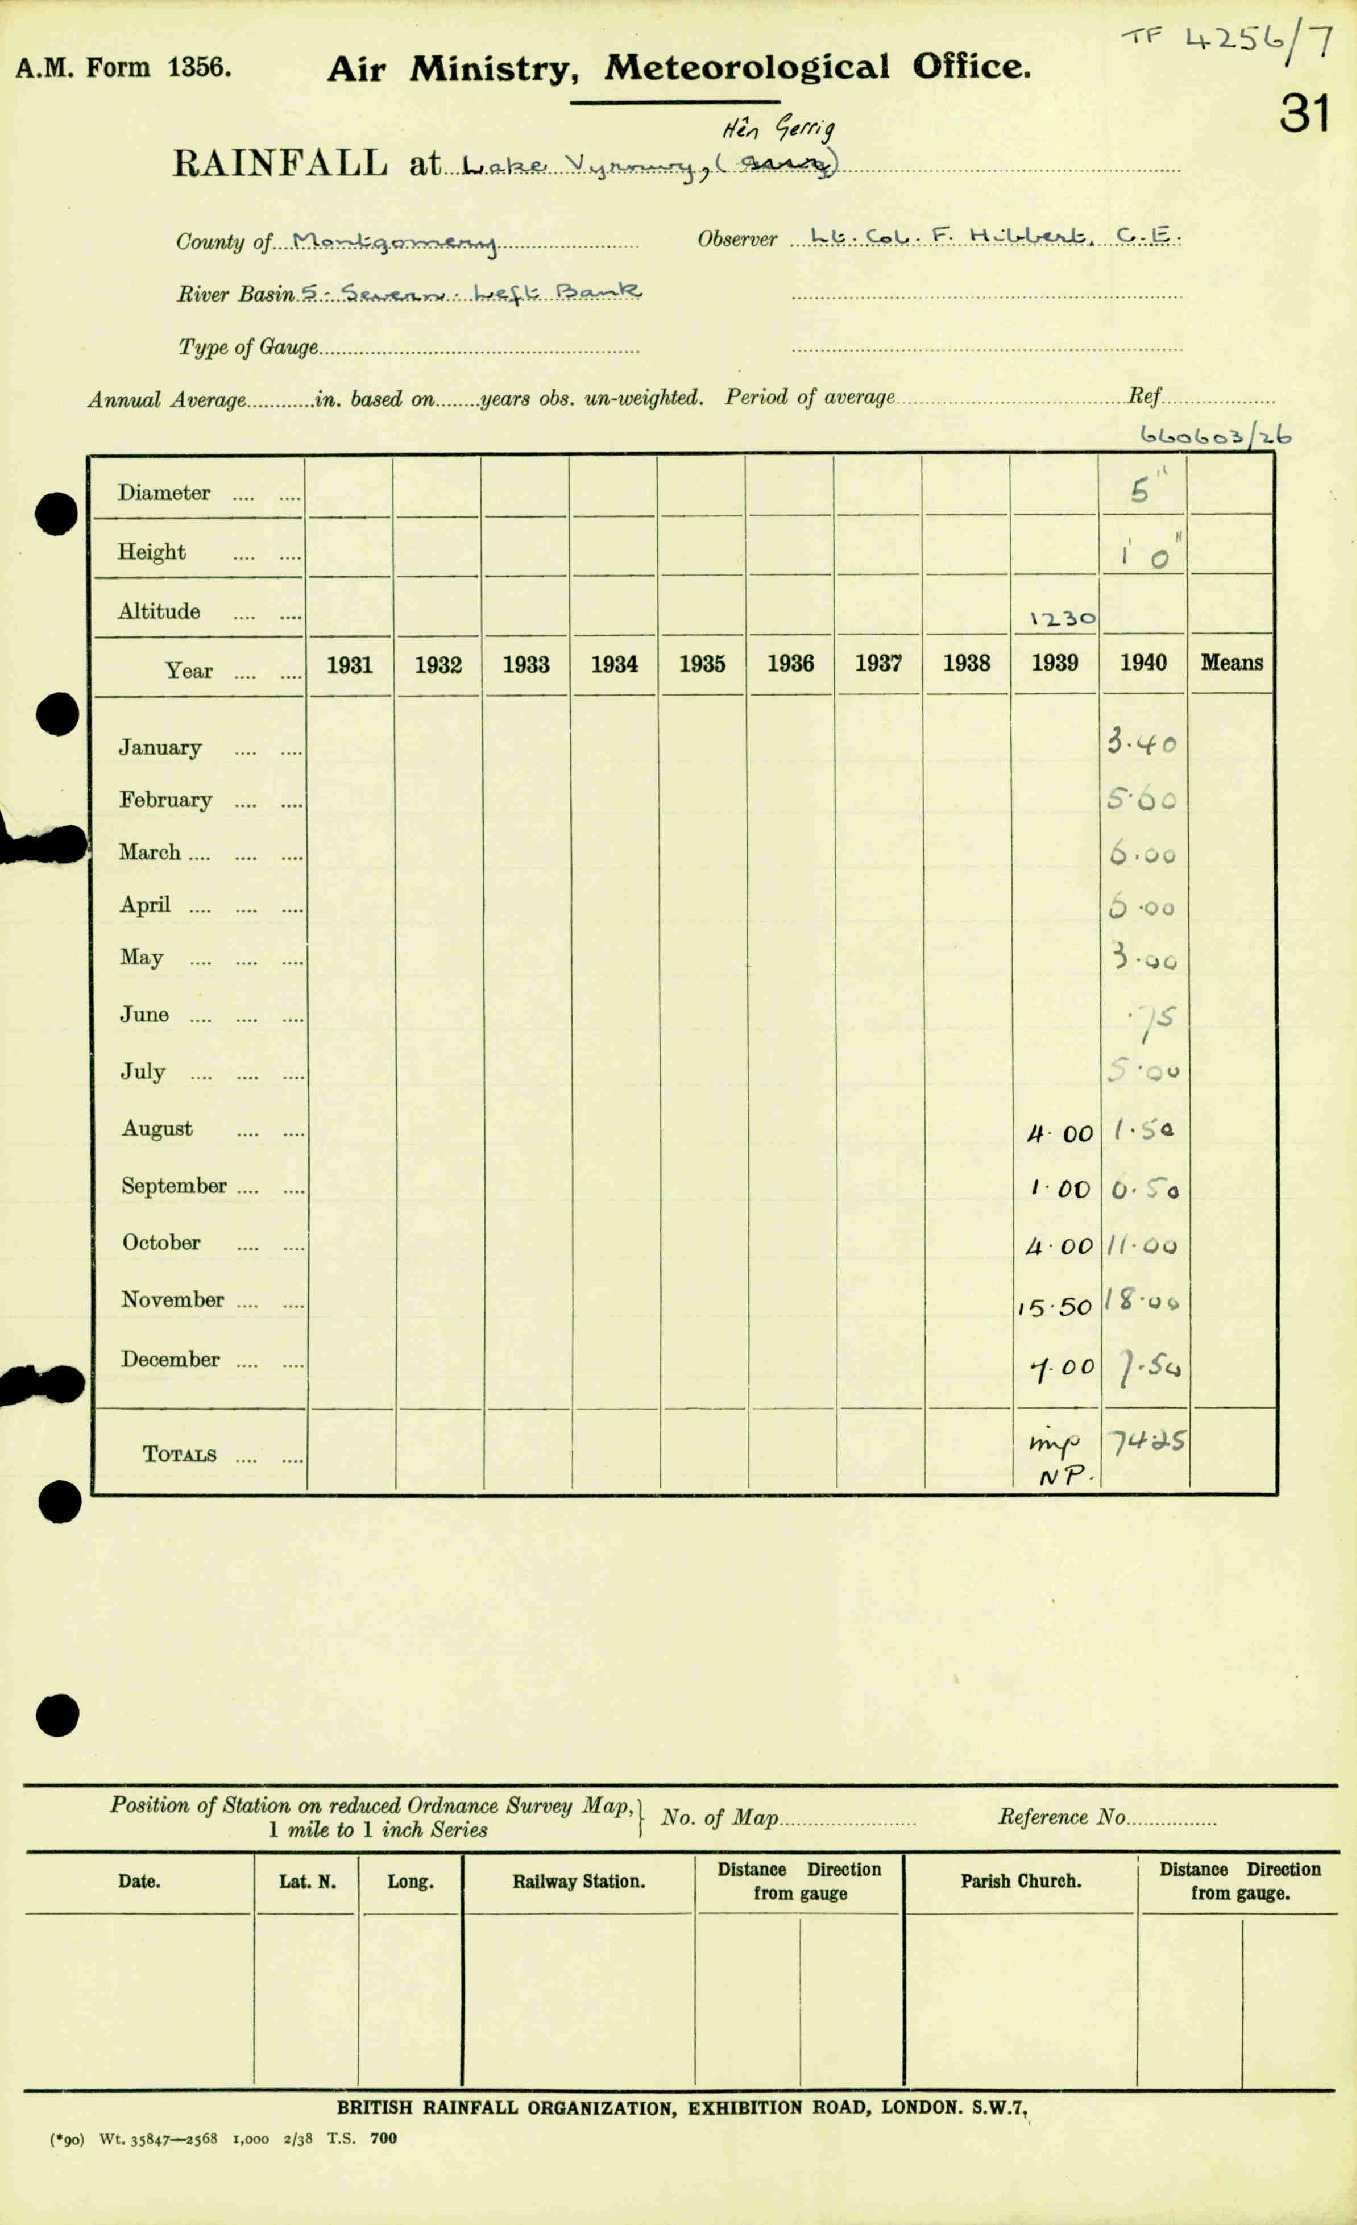 TF 4256/7
A.M. Form 1356. Air Ministry, Meteorological Office.
31
Hên Gerrig
RAINFALL at Lake Vyrnwy, ( )
County of Montgomery Observer Lt. Col. F. Hibbert, C.E.
River Basin 5 - Severn - Left Bank
Type of Gauge
Annual Average in. based on years obs. un-weighted. Period of average Ref.
660603/26
Diameter .... .... 5"
Height .... .... 1' 0"
Altitude .... .... 1230
Year .... .... 1931 1932 1933 1934 1935 1936 1937 1938 1939 1940 Means
January .... .... 3.40
February .... .... 5.60
March .... .... .... 6.00
April .... .... .... 6.00
May .... .... .... 3.00
June .... .... .... .75
July .... .... .... 5.00
August .... .... 4.00 1.50
September .... .... 1.00 6.50
October .... .... 4.00 11.00
November .... .... 15.50 18.00
December .... .... 7.00 7.50
TOTALS .... .... imp 74.25
NP.
Position of Station on reduced Ordnance Survey Map, } No. of Map Reference No.
1 mile to 1 inch Series
Date. Lat. N. Long. Railway Station. Distance Direction from gauge Parish Church. Distance Direction from gauge.
BRITISH RAINFALL ORGANIZATION, EXHIBITION ROAD, LONDON. S.W.7.
(*90) Wt. 35847—2568 1,000 2/38 T.S. 700